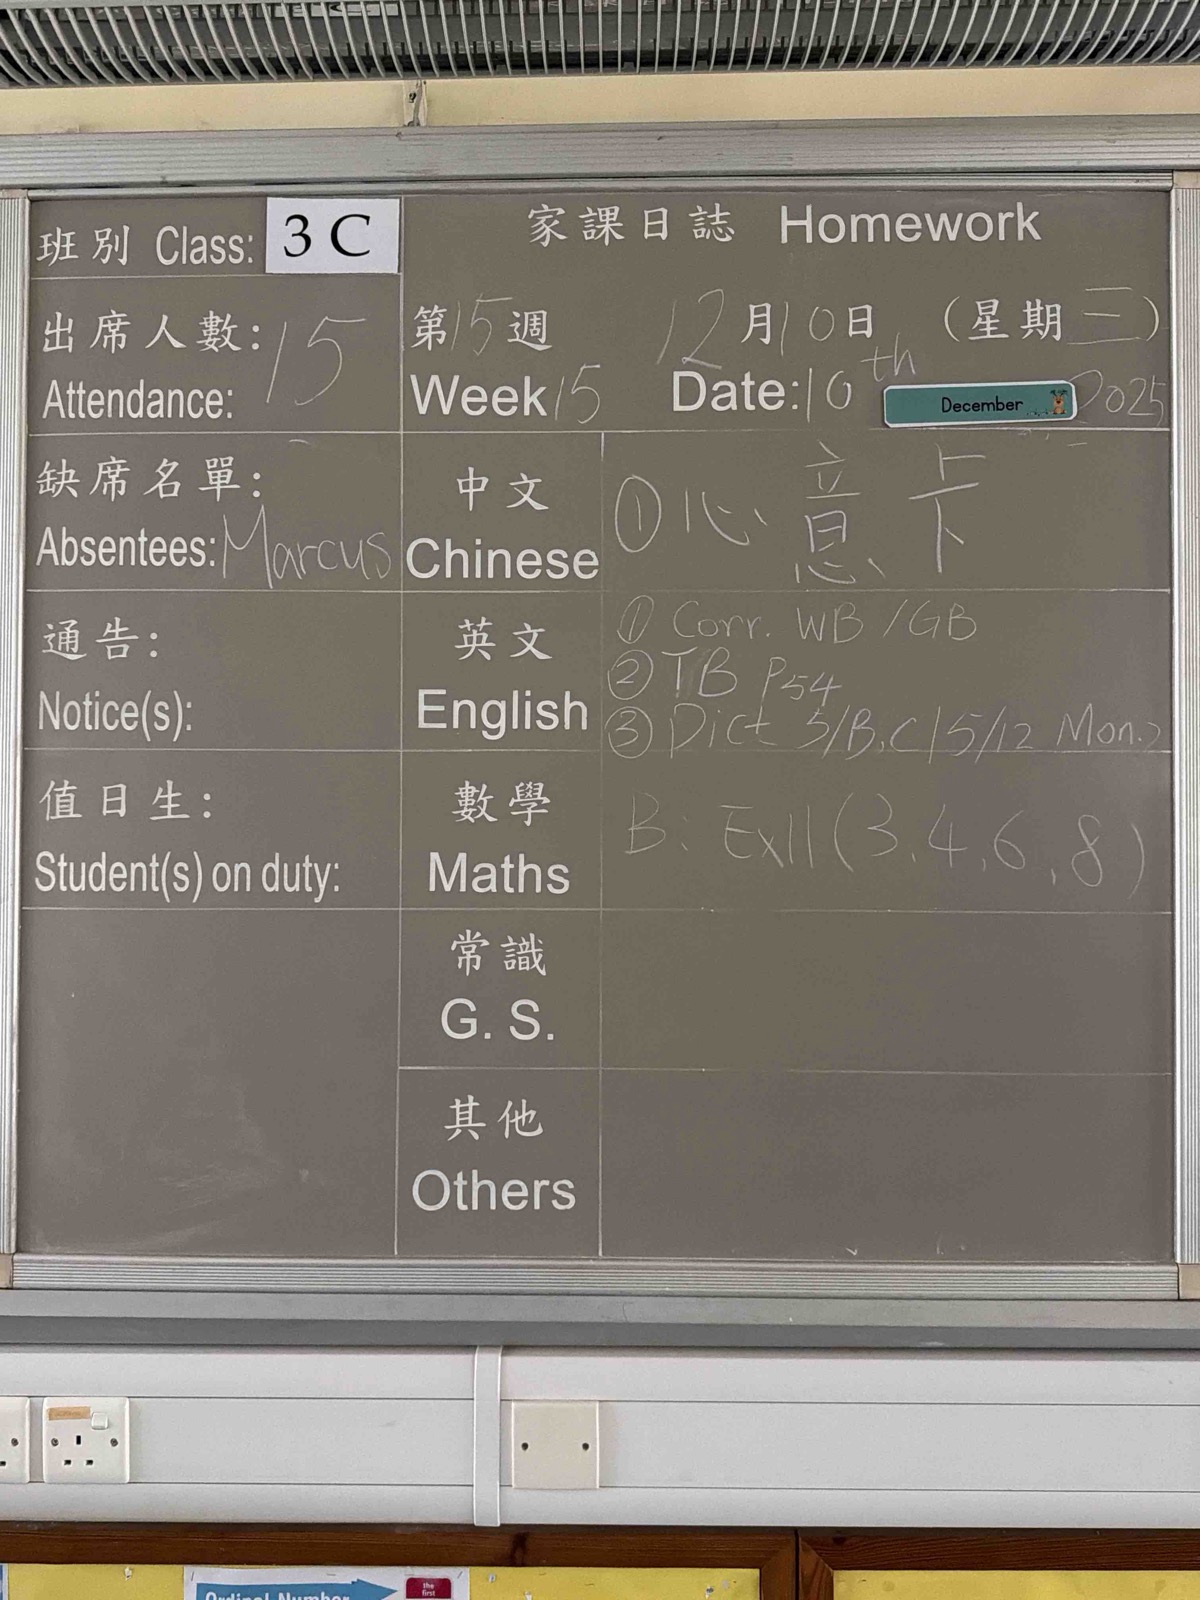 班別 Class: 3 C
家課日誌 Homework
出席人數: 15
Attendance:
第15週 12月10日 (星期三)
Week 15 Date: 10th December 2025
缺席名單:
Absentees: Marcus
中文
Chinese
① 心意卡
通告:
Notice(s):
英文
English
① Corr. WB / GB
② TB P54
③ Dict 5/B,C 15/12 Mon.
值日生:
Student(s) on duty:
數學
Maths
B: Ex11 (3, 4, 6, 8)
常識
G. S.
其他
Others
Ordinal Number
the first